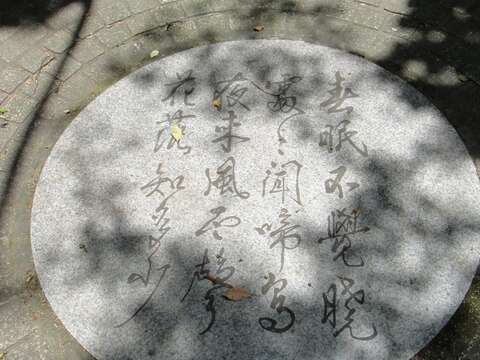 春眠不覺曉
處々聞啼鳥
夜来風雨聲
花落知多少